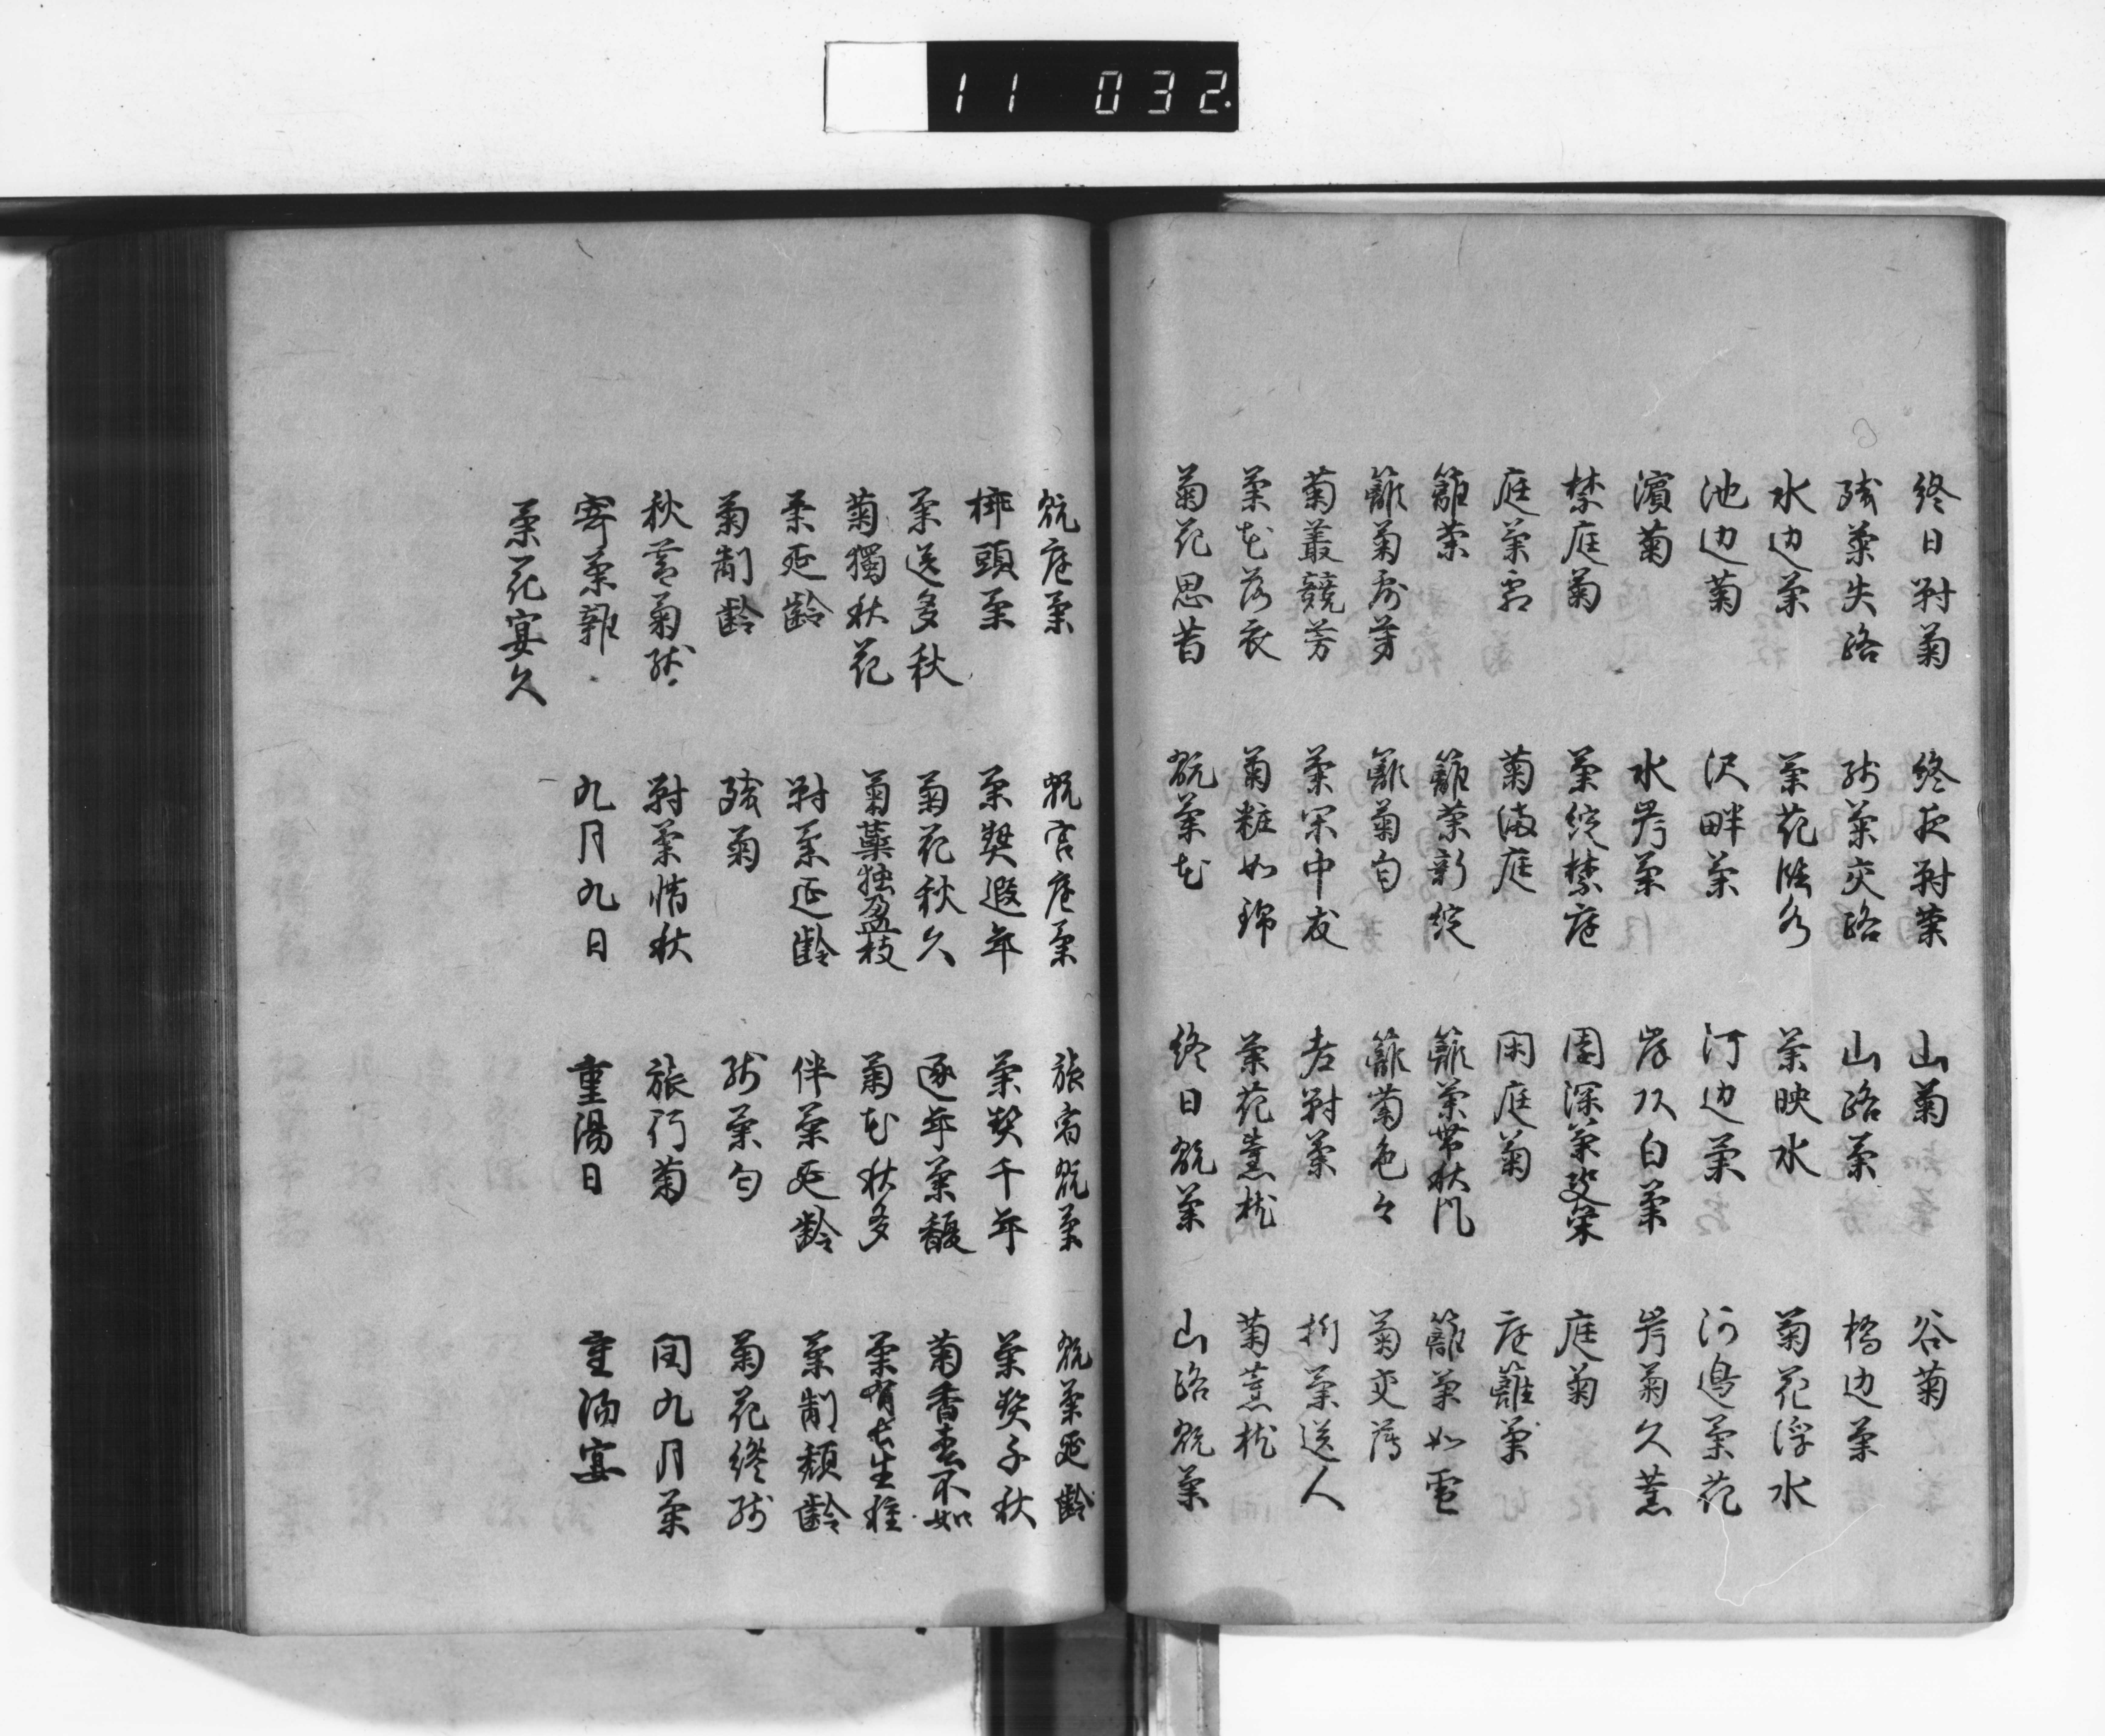 11 032
終日對菊 終夜對菊 山菊 谷菊
残菊失路 残菊夾路 山路菊 橋辺菊
水辺菊 菊花臨水 菊映水 菊花浮水
池辺菊 沢畔菊 河辺菊 河邊菊花
濱菊 水岸菊 岸以白菊 岸菊久薫
禁庭菊 菊綻禁庭 園深菊 庭菊
庭菊霜 菊満庭 閑庭菊 庭籬菊
籬菊 籬菊新綻 籬菊帯秋 籬菊如雪
籬菊 籬菊匂 籬菊色々 菊交薄
菊叢競芳 菊閑中友 老對菊 折菊送人
菊花落衣 菊粧如錦 菊花薫枕 菊薫枕
菊花思昔 翫菊花 終日翫菊 山路翫菊
翫庭菊 翫宮庭菊 旅宿翫菊 翫菊延齢
挿頭菊 菊契遐年 菊契千年 菊契千秋
菊送多秋 菊花秋久 逐年菊馥 菊香不如
菊獨秋花 菊蘂独盈枝 菊花秋多 菊有長生種
菊延齢 對菊延齢 伴菊延齢 菊制頽齢
菊制齢 残菊 残菊匂 菊花纔残
秋暮菊残 對菊惜秋 旅行菊 閏九月菊
寄菊雜 九月九日 重陽日 重陽宴
菊花宴久